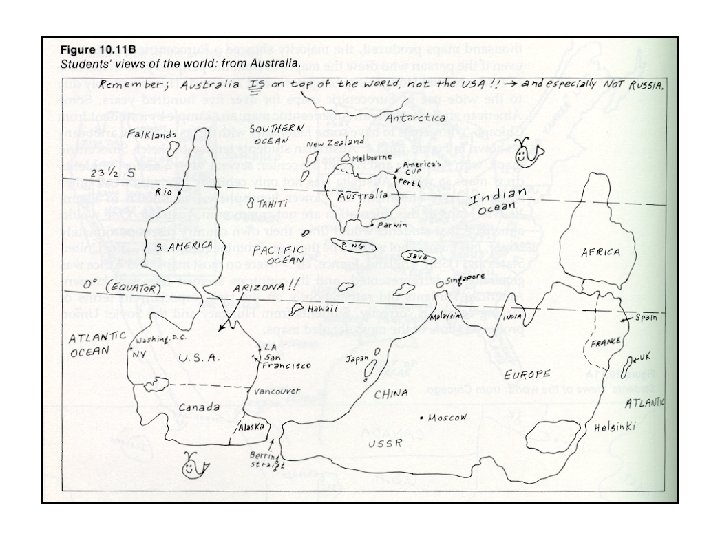 Figure 10.11B
Students' views of the world: from Australia.
Remember; Australia IS on top of the WORLD, not the USA!! → and especially NOT RUSSIA.
Antarctica
Falklands
SOUTHERN
OCEAN
New Zealand
Melbourne
America's
CUP
Perth
23½ S
Rio
TAHITI
Australia
Indian
Ocean
Darwin
S. AMERICA
PACIFIC
OCEAN
PNG
Java
AFRICA
Singapore
0° (EQUATOR)
ARIZONA!!
Hawaii
Malaysia
INDIA
Spain
ATLANTIC
OCEAN
Washing. D.C.
NY
U.S.A.
LA
San
Francisco
Japan
FRANCE
UK
EUROPE
Vancouver
CHINA
ATLANTIC
Canada
Moscow
Alaska
USSR
Helsinki
Berring
straight